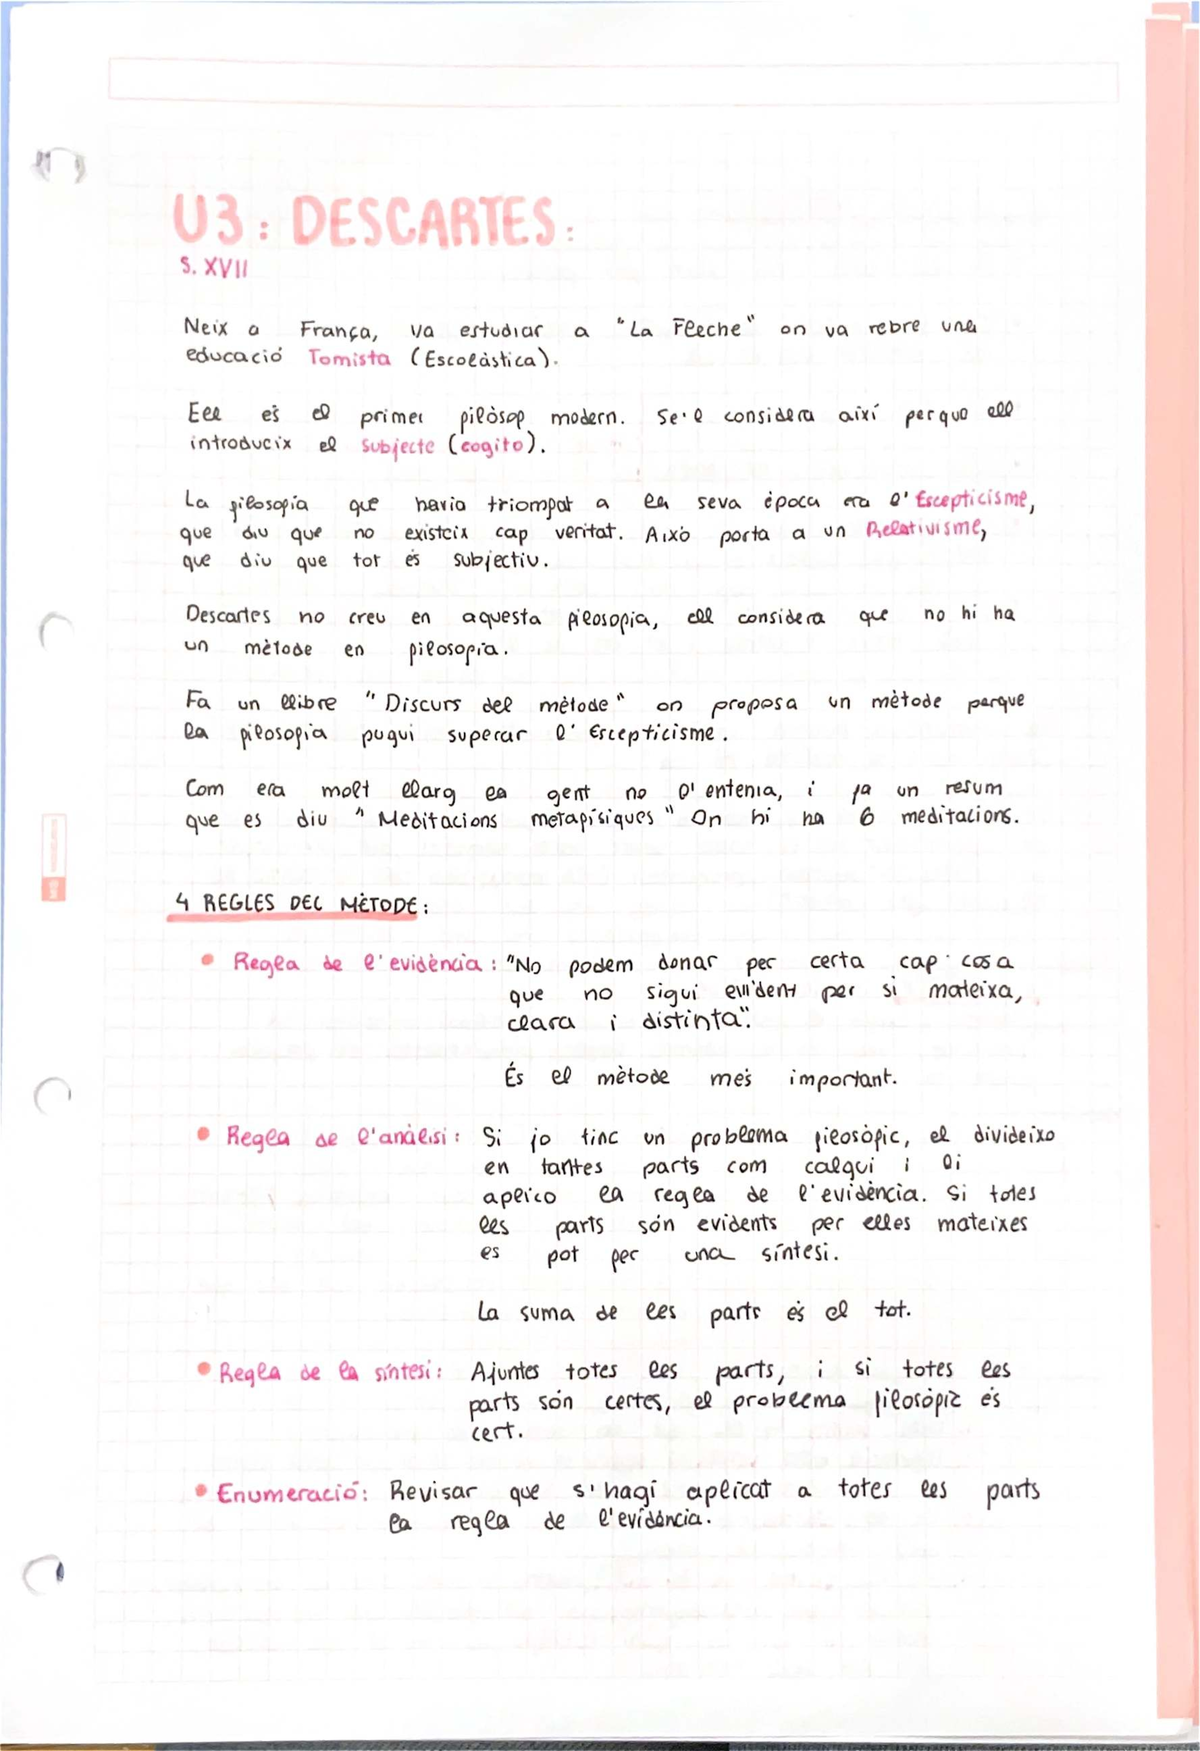 U3: DESCARTES:
S. XVII
Neix a França, va estudiar a "La Fleche" on va rebre una
educació Tomista (Escolàstica).
Ell és el primer filòsof modern. Se'l considera així perque ell
introdueix el Subjecte (cogito).
La filosofia que havia triomfat a la seva època era l'Escepticisme,
que diu que no existeix cap veritat. Això porta a un Relativisme,
que diu que tot és subjectiu.
Descartes no creu en aquesta filosofia, ell considera que no hi ha
un mètode en filosofia.
Fa un llibre "Discurs del mètode" on proposa un mètode perque
la filosofia pugui superar l'Escepticisme.
Com era molt llarg la gent no l'entenia, i fa un resum
que es diu "Meditacions metafísiques" On hi ha 6 meditacions.
4 REGLES DEL MÈTODE:
• Regla de l'evidència: "No podem donar per certa cap cosa
que no sigui evident per si mateixa,
clara i distinta".
És el mètode més important.
• Regla de l'anàlisi: Si jo tinc un problema filosòfic, el divideixo
en tantes parts com calgui i li
aplico la regla de l'evidència. Si totes
les parts són evidents per elles mateixes
es pot fer una síntesi.
La suma de les parts és el tot.
• Regla de la síntesi: Ajuntes totes les parts, i si totes les
parts són certes, el problema filosòfic és
cert.
• Enumeració: Revisar que s'hagi aplicat a totes les parts
la regla de l'evidència.